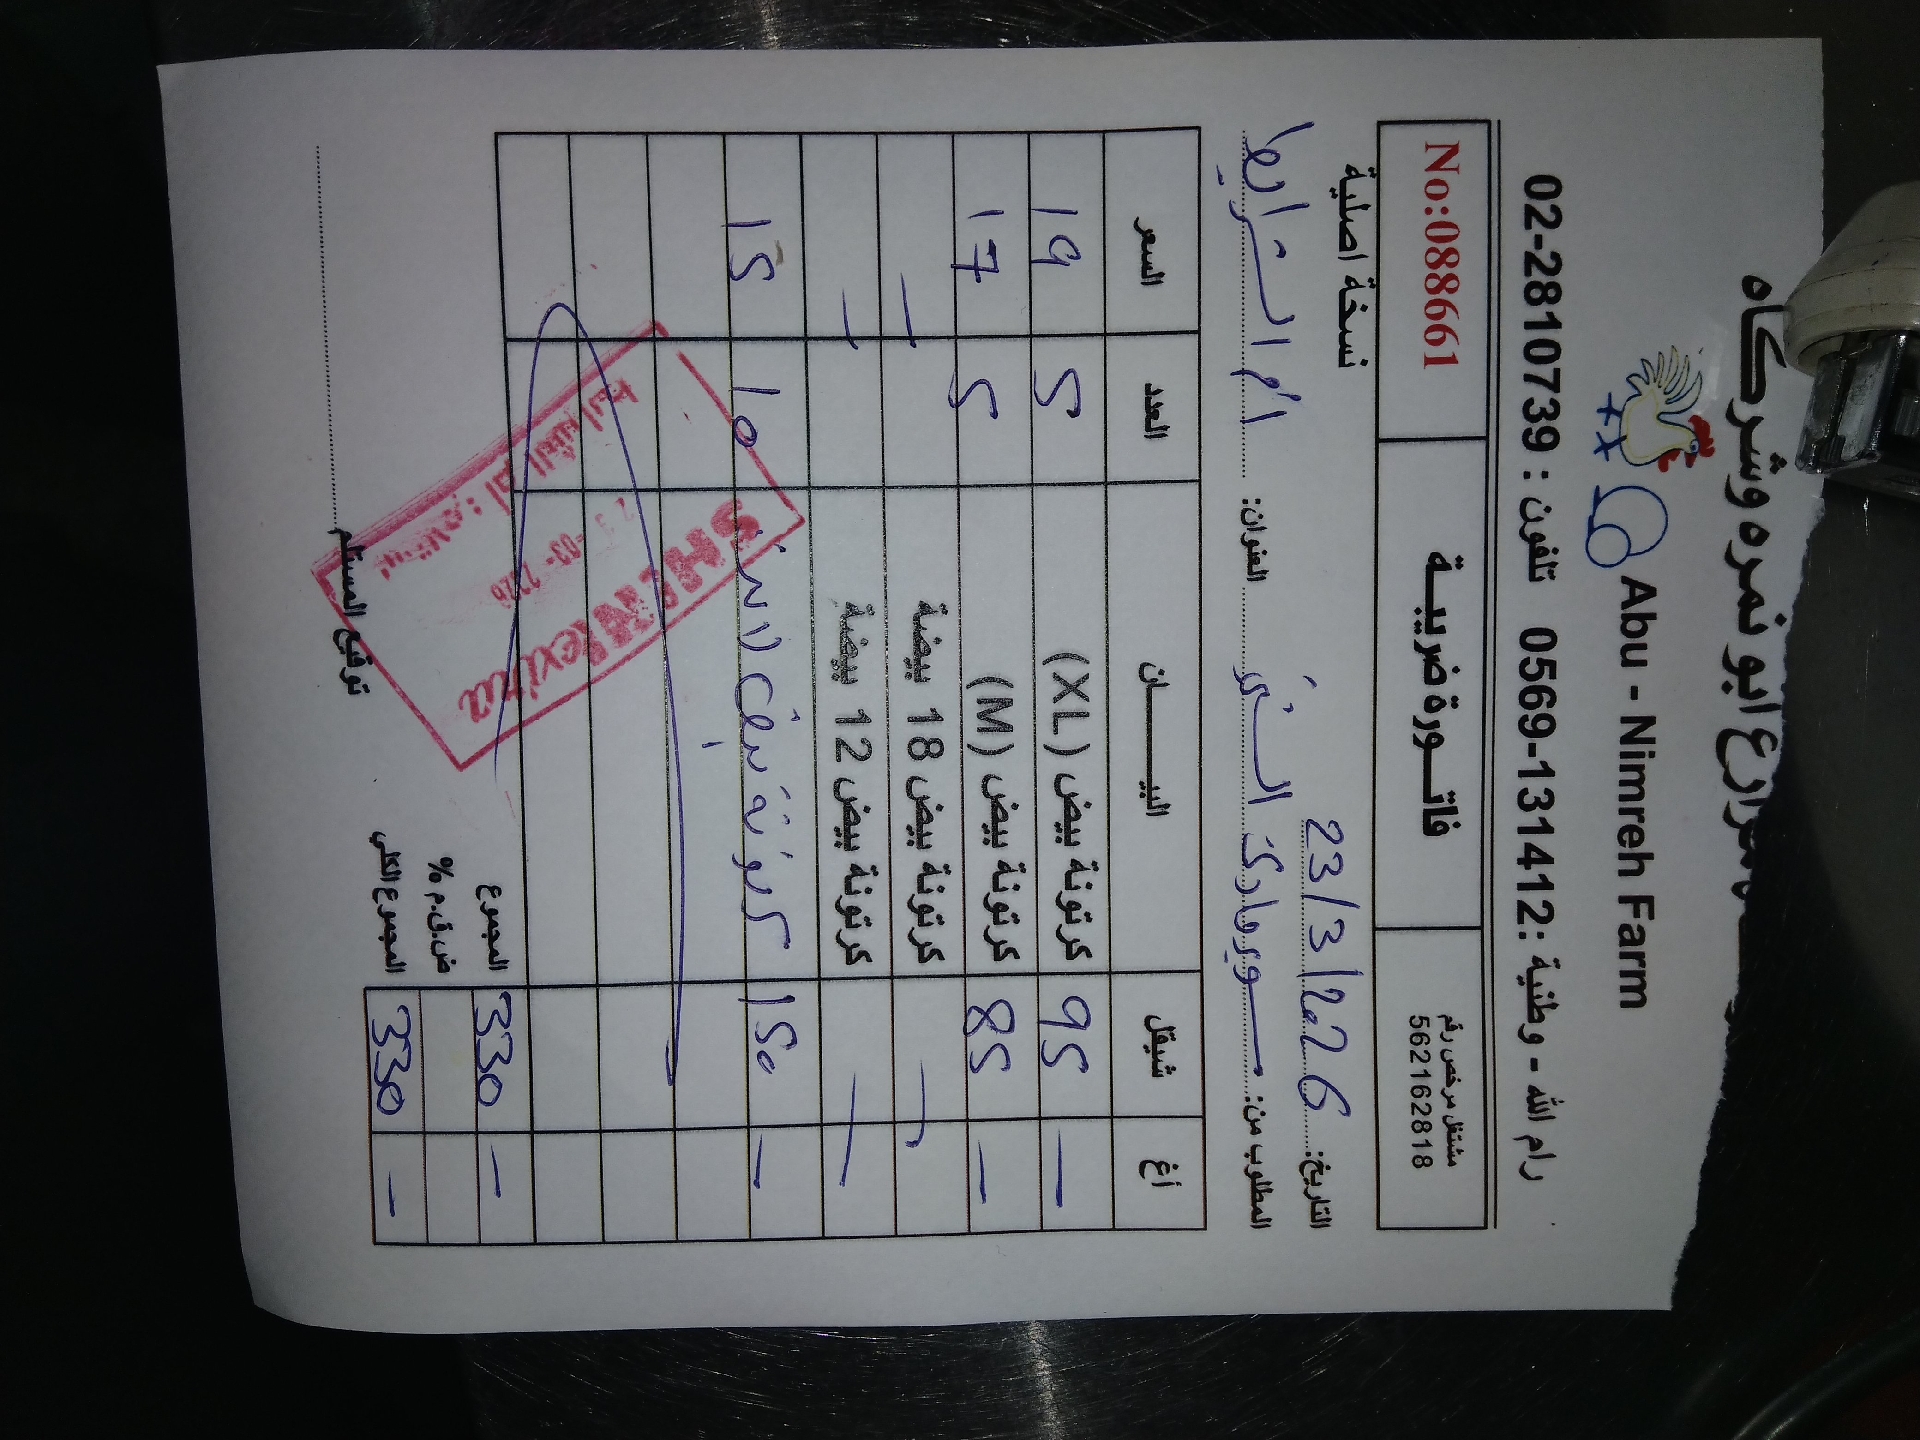 مزارع ابو نمره وشركاه
Abu - Nimreh Farm
رام الله - وطنية : 0569-131412 تلفون : 02-2810739
مشتغل مرخص رقم
562162818
فاتــورة ضريبــة
No:088661
التاريخ: 23/3/2026
نسخة اصلية
المطلوب من: العنوان:
أغ شيقل البيــــــان العدد السعر
— 95 كرتونة بيض (XL) 5 19
— 85 كرتونة بيض (M) 5 17
— كرتونة بيض 18 بيضة —
— — كرتونة بيض 12 بيضة —
— 150 كرتونة بيض 10 15
المجموع 330 —
ض.ق.م %
المجموع الكلي 330 —
توقيع المستلم
-03- 2026